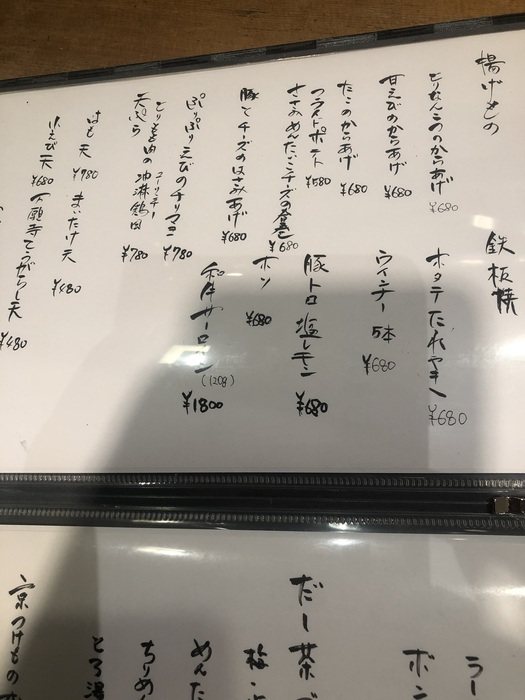 揚げもの
とりなんこつのからあげ
¥680
甘えびのからあげ
¥680
たこのからあげ
¥680
フライドポテト
¥580
ささみめんたいこチーズの春巻
¥680
豚とチーズのはさみあげ
¥680
ぷりぷりえびのチリマヨ
¥780
とりもも肉の油淋鶏風
ユーリンチー
¥780
天ぷら
はも天
¥780
まいたけ天
¥480
小えび天
¥680
万願寺とうがらし天
¥480
鉄板焼
ホタテたれやき
¥680
ウィンナー 5本
¥680
豚トロ塩レモン
¥680
ホルモン
¥680
和牛サーロイン
(120g)
¥1800
ラー
ボン
だし茶づ
梅・
めんた
ちりめ
とろ湯
京つけもの